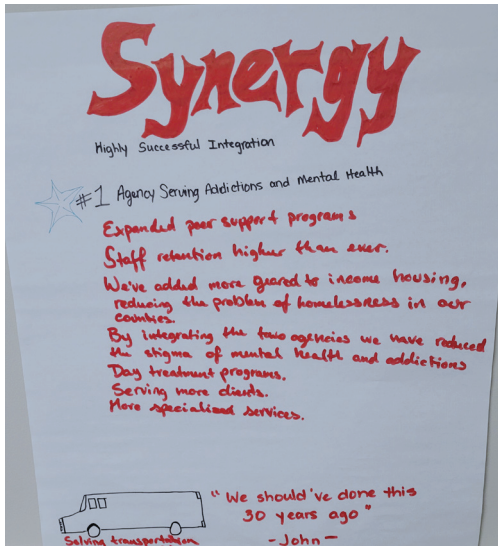 Synergy
Highly Successful Integration
#1 Agency Serving Addictions and Mental Health
Expanded peer support programs
Staff retention higher than ever.
We've added more geared to income housing,
reducing the problem of homelessness in our
counties.
By integrating the two agencies we have reduced
the stigma of mental health and addictions
Day treatment programs.
Serving more clients.
More specialized services.
"We should've done this
30 years ago"
-John-
Solving transportation